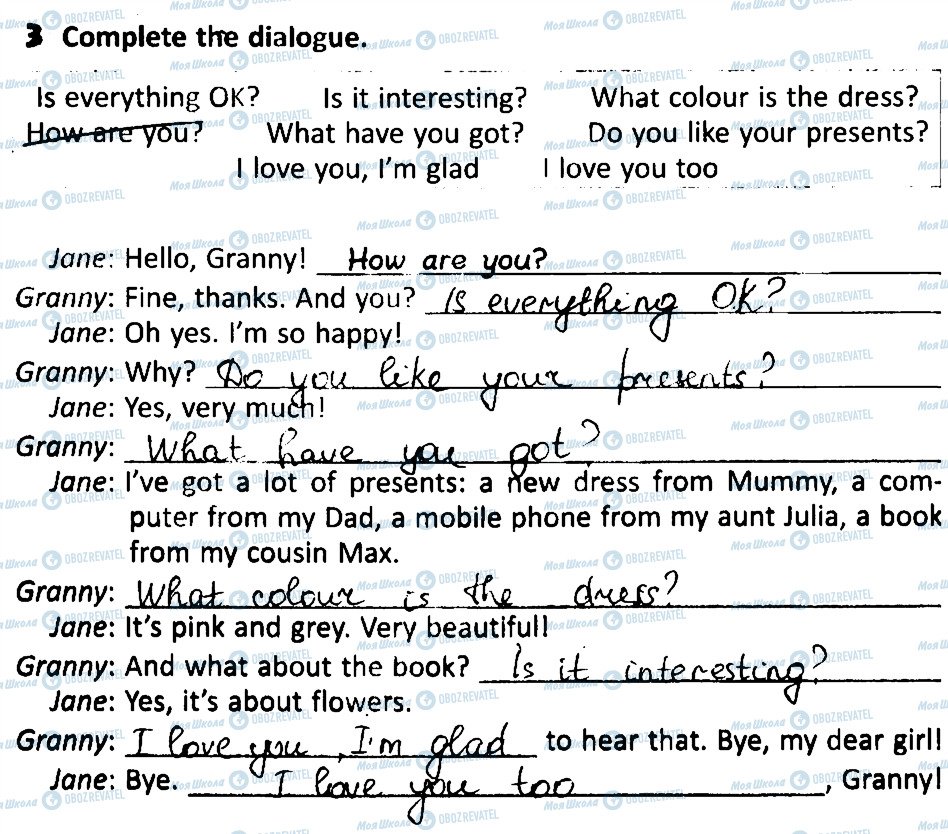 3 Complete the dialogue.
Is everything OK? Is it interesting? What colour is the dress?
How are you? What have you got? Do you like your presents?
I love you, I'm glad I love you too
Jane: Hello, Granny! How are you?
Granny: Fine, thanks. And you? Is everything OK?
Jane: Oh yes. I'm so happy!
Granny: Why? Do you like your presents?
Jane: Yes, very much!
Granny: What have you got?
Jane: I've got a lot of presents: a new dress from Mummy, a com-
puter from my Dad, a mobile phone from my aunt Julia, a book
from my cousin Max.
Granny: What colour is the dress?
Jane: It's pink and grey. Very beautiful!
Granny: And what about the book? Is it interesting?
Jane: Yes, it's about flowers.
Granny: I love you, I'm glad to hear that. Bye, my dear girl!
Jane: Bye. I love you too, Granny!
МояШкола OBOZREVATEL